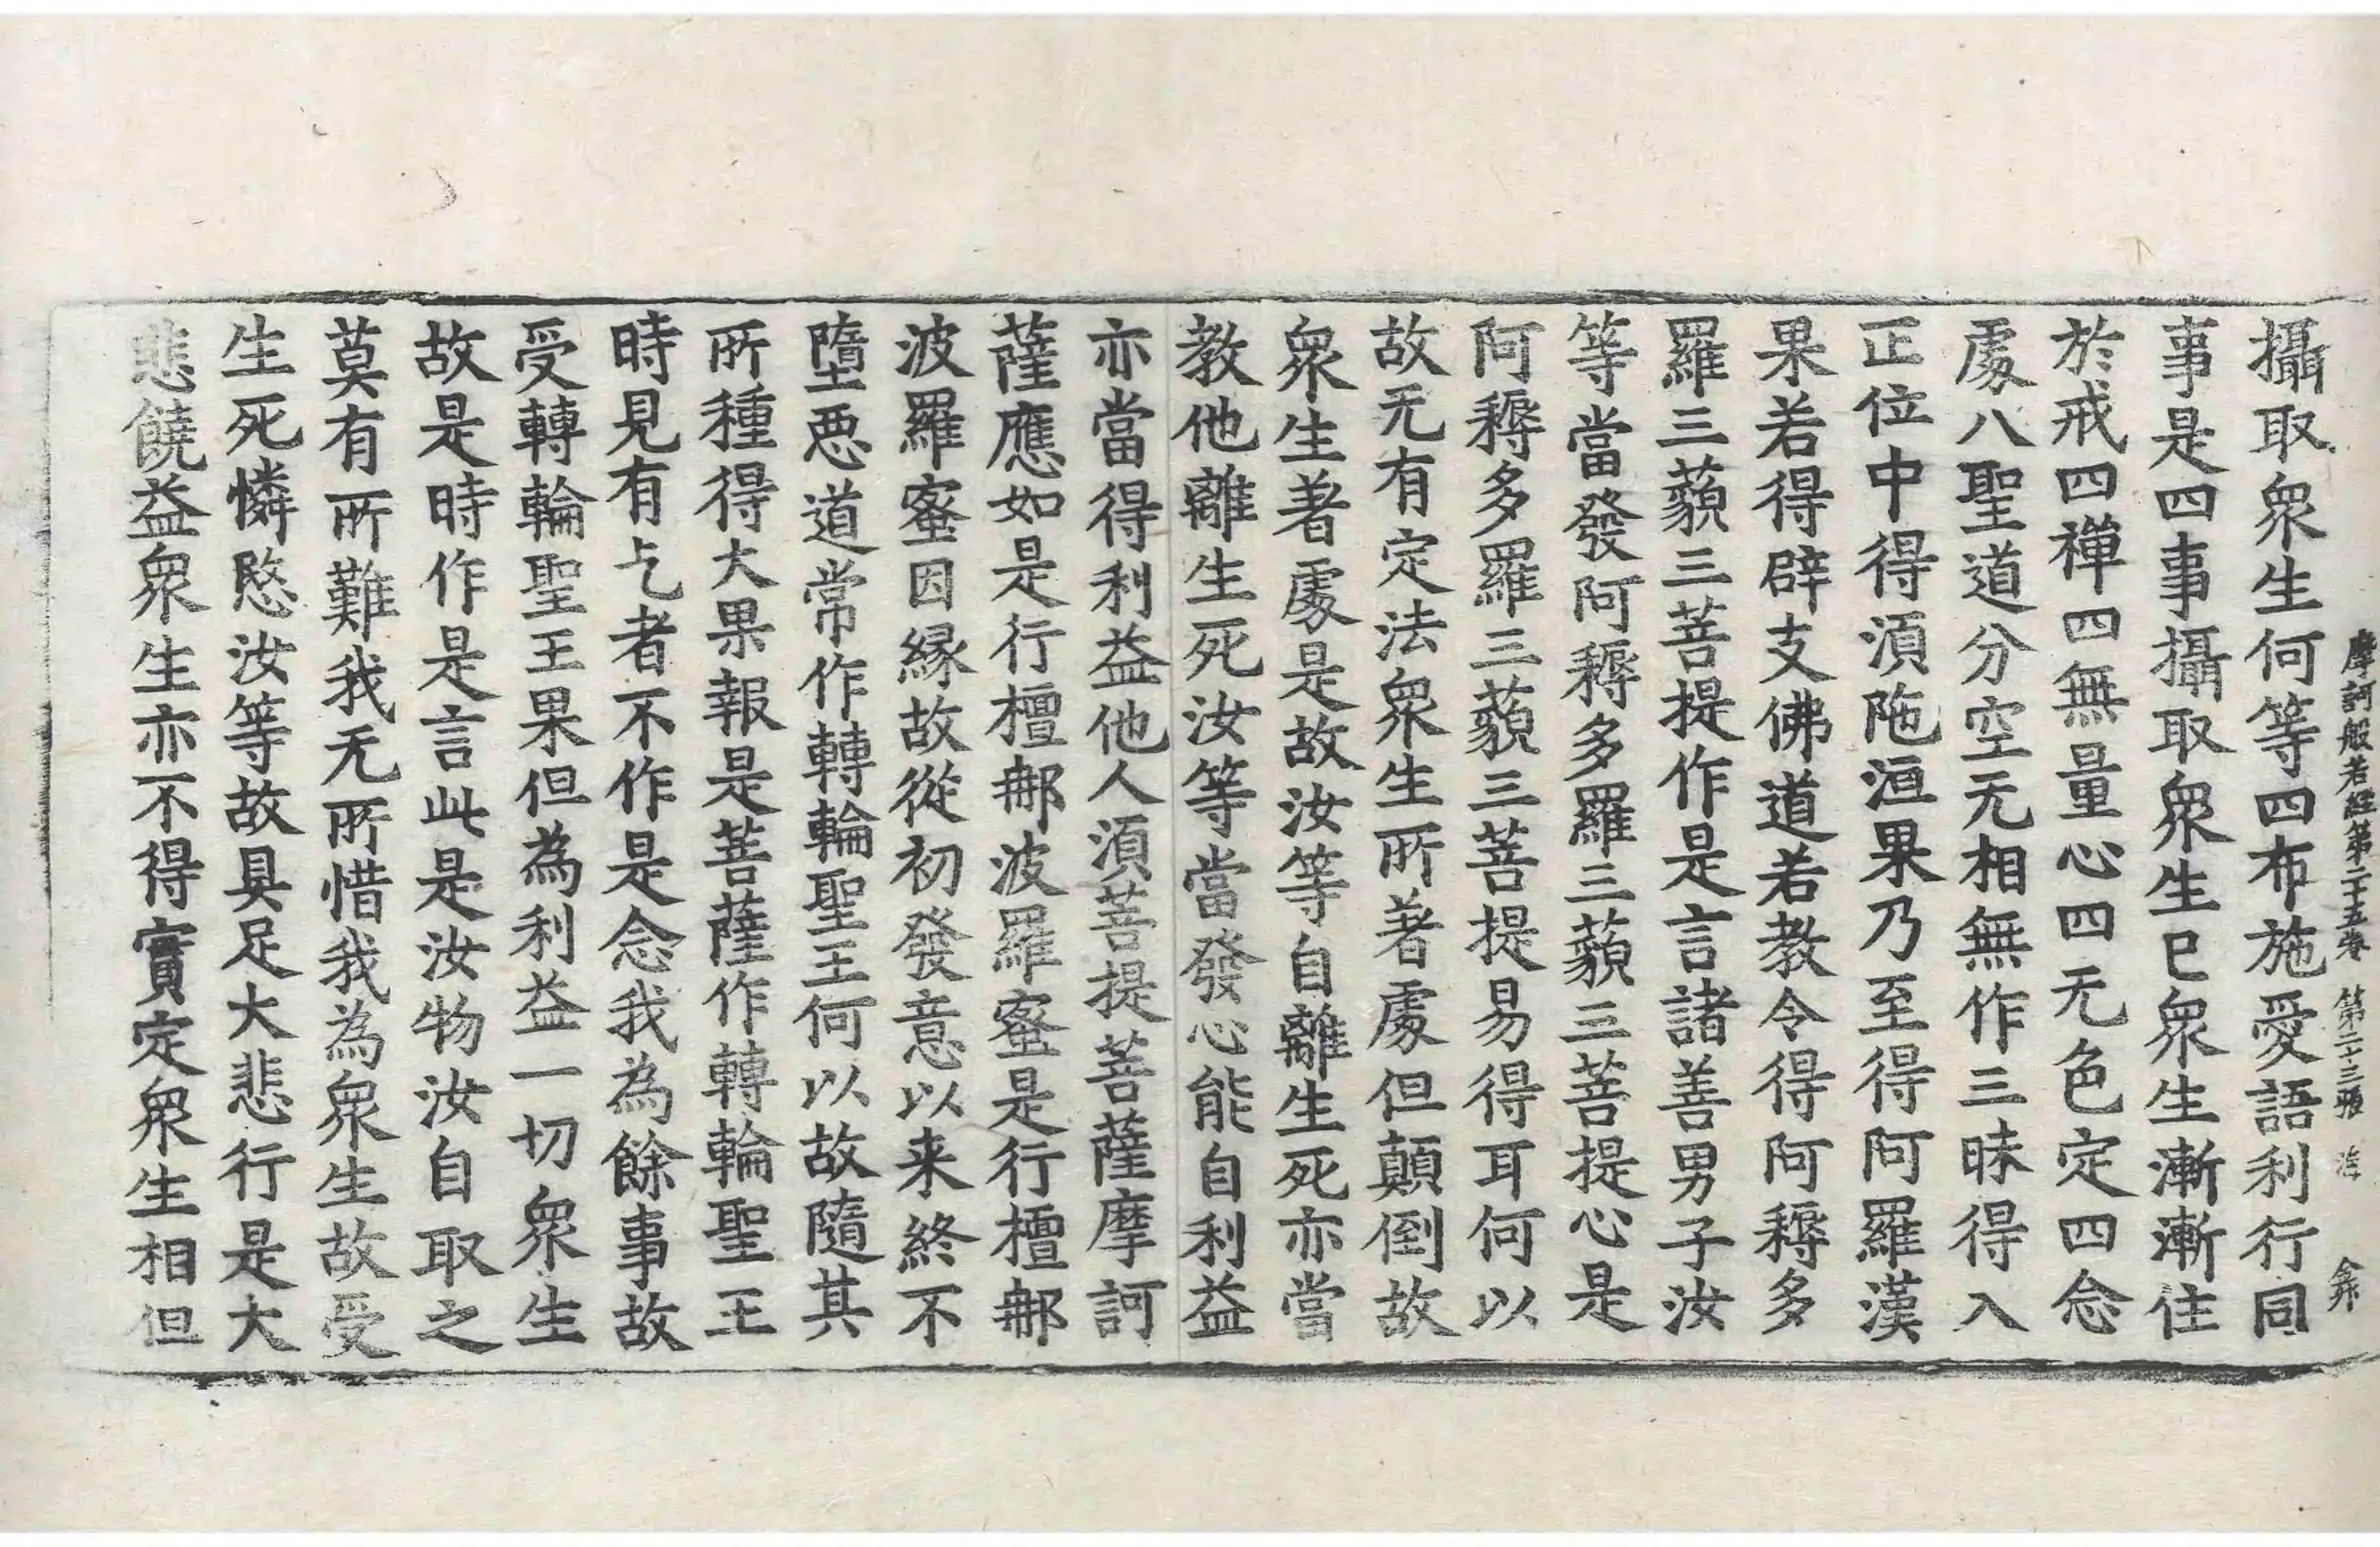 摩訶般若經第二十五卷 第二十三張
攝取衆生何等四布施愛語利行同
事是四事攝取衆生已衆生漸漸住
於戒四禪四無量心四无色定四念
處八聖道分空无相無作三昧得入
正位中得湏陁洹果乃至得阿羅漢
果若得辟支佛道若教令得阿耨多
羅三藐三菩提作是言諸善男子汝
等當發阿耨多羅三藐三菩提心是
阿耨多羅三藐三菩提易得耳何以
故无有定法衆生所著處但顛倒故
衆生著處是故汝等自離生死亦當
教他離生死汝等當發心能自利益
亦當得利益他人湏菩提菩薩摩訶
薩應如是行檀郍波羅蜜是行檀郍
波羅蜜因緣故從初發意以来終不
墮惡道常作轉輪聖王何以故隨其
所種得大果報是菩薩作轉輪聖王
時見有乞者不作是念我為餘事故
受轉輪聖王果但為利益一切衆生
故是時作是言此是汝物汝自取之
莫有所難我无所惜我為衆生故受
生死憐愍汝等故具足大悲行是大
悲饒益衆生亦不得實定衆生相但